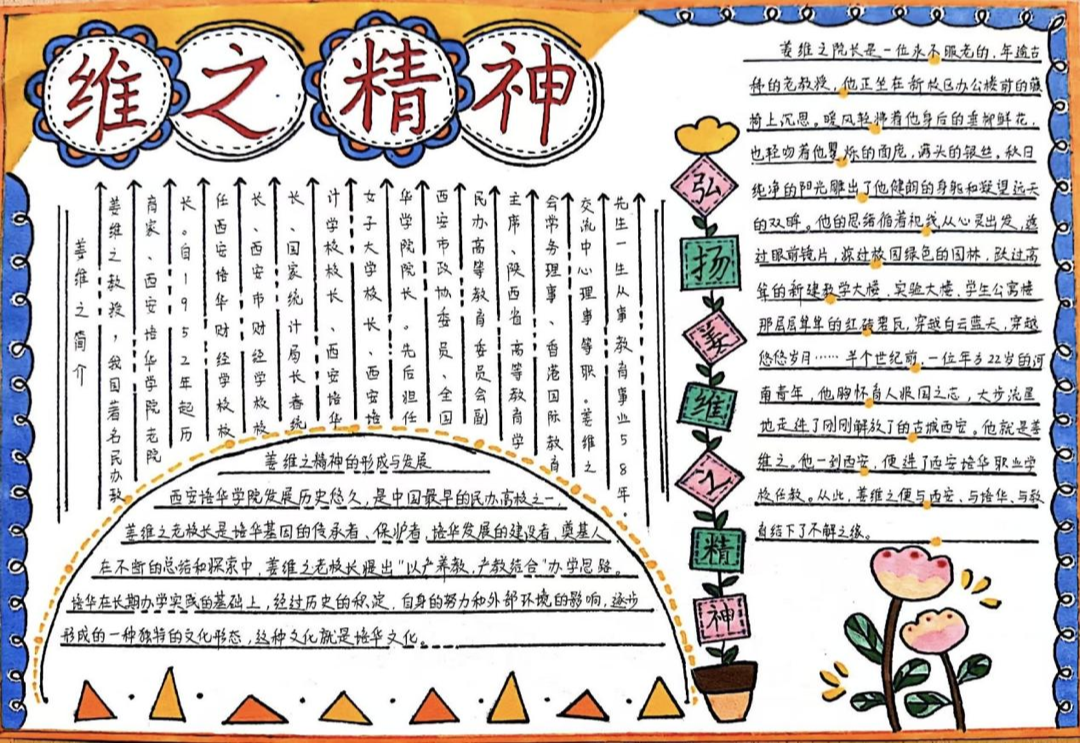 维之精神
姜维之简介
姜维之教授,我国著名民办教
育家、西安培华学院老院
长。自1952年起历
任西安培华财经学校校
长、西安市财经学校校
长、国家统计局长春统
计学校校长、西安培华
女子大学校长、西安培
华学院院长。先后担任
西安市政协委员、全国
民办高等教育委员会副
主席、陕西省高等教育学
会常务理事、香港国际教育
交流中心理事等职。姜维之
先生一生从事教育事业58年。
姜维之精神的形成与发展
西安培华学院发展历史悠久,是中国最早的民办高校之一,
姜维之老校长是培华基因的传承者、保护者,培华发展的建设者、奠基人
在不断的总结和探索中,姜维之老校长提出“以产养教,产教结合”办学思路。
培华在长期办学实践的基础上,经过历史的积淀,自身的努力和外部环境的影响,逐步
形成的一种独特的文化形态,这种文化就是培华文化。
弘
扬
姜
维
之
精
神
姜维之院长是一位永不服老的,年逾古
稀的老教授,他正坐在新校区办公楼前的藤
椅上沉思。暖风轻拂着他身后的垂柳鲜花,
也轻吻着他的面庞,满头的银丝,秋日
纯净的阳光雕出了他健朗的身躯和凝望远天
的双眸。他的思绪循着视线从心灵出发,透
过眼前镜片,掠过校园绿色的园林,跃过高
耸的新建教学大楼、实验大楼、学生公寓楼
那层层耸耸的红砖碧瓦,穿越白云蓝天,穿越
悠悠岁月……半个世纪前,一位年方22岁的河
南青年,他胸怀育人报国之志,大步流星
地走进了刚刚解放了的古城西安。他就是姜
维之。他一到西安,便进了西安培华职业学
校任教。从此,姜维之便与西安、与培华、与教
育结下了不解之缘。